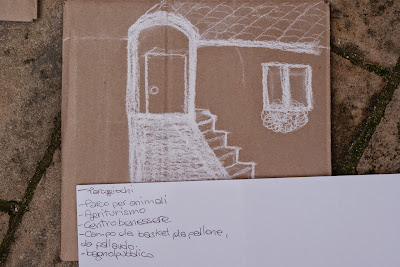 - Parcogiochi
-Parco per animali
-Agriturismo
-Centro benessere
-Campo da basket, da pallone,
da pallavolo.
-bagno pubblico